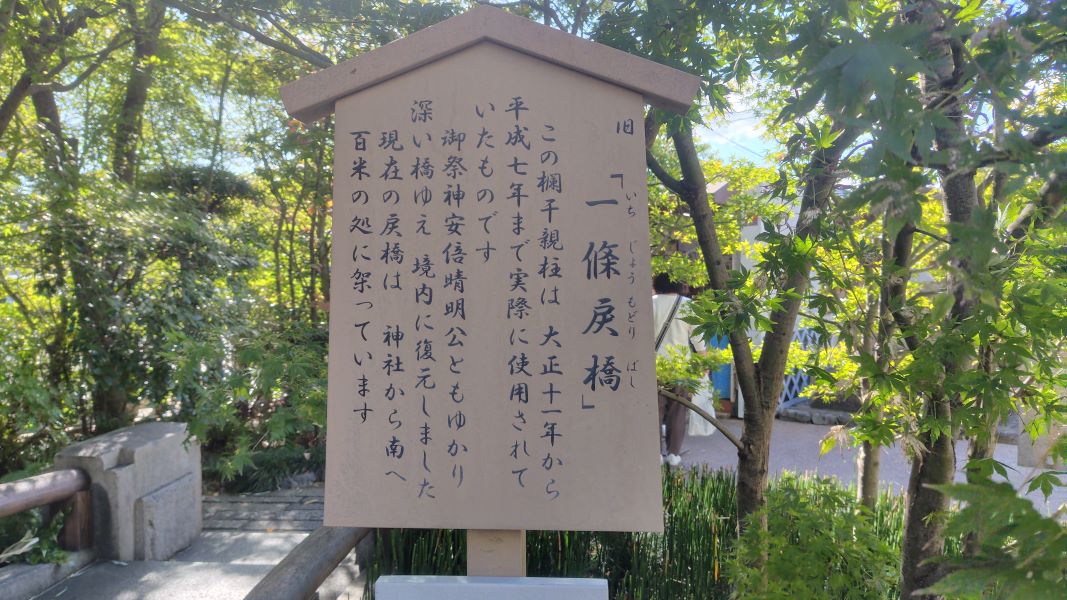 旧「一條戻橋」
いち じょう もどり ばし
この欄干親柱は 大正十一年から
平成七年まで実際に使用されて
いたものです
御祭神安倍晴明公ともゆかり
深い橋ゆえ 境内に復元しました
現在の戻橋は 神社から南へ
百米の処に架っています